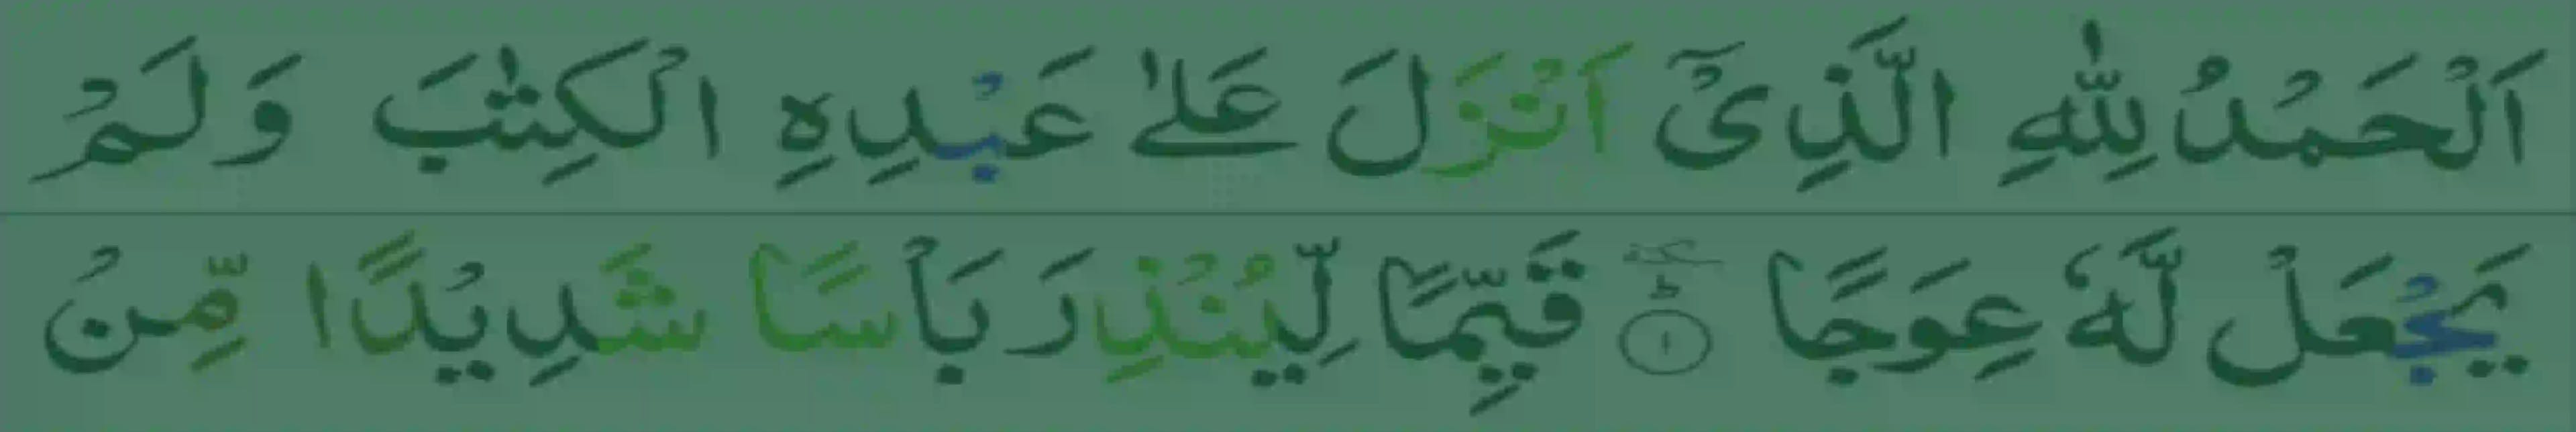 اَلْحَمْدُ لِلّٰهِ الَّذِیْۤ اَنْزَلَ عَلٰی عَبْدِهِ الْكِتٰبَ وَلَمْ
یَجْعَلْ لَّهٗ عِوَجًا ؕ سكتة ۝۱ قَیِّمًا لِّیُنْذِرَ بَاْسًا شَدِیْدًا مِّنْ